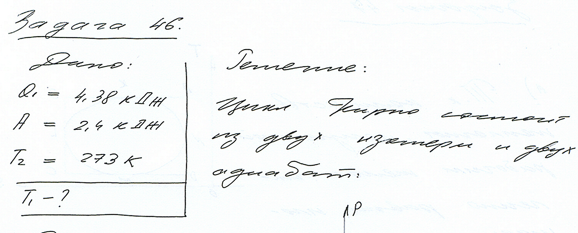 Задача 46.
Дано:
Q₁ = 4,38 кДж
A = 2,4 кДж
T₂ = 273 К
T₁ - ?
Решение:
Цикл Карно состоит
из двух изотерм и двух
адиабат:
P